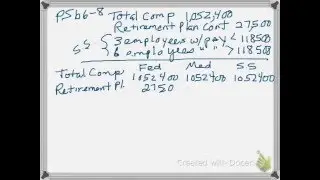 P5b6-8 Total Comp 1,052,400
Retirement Plan Cont 27500
SS { 3 employees w/pay < 118500
6 employees " " > 118500
Fed Med S.S
Total Comp 1052400 1052400 1052400
Retirement Pl. 2750
Created with Doceri